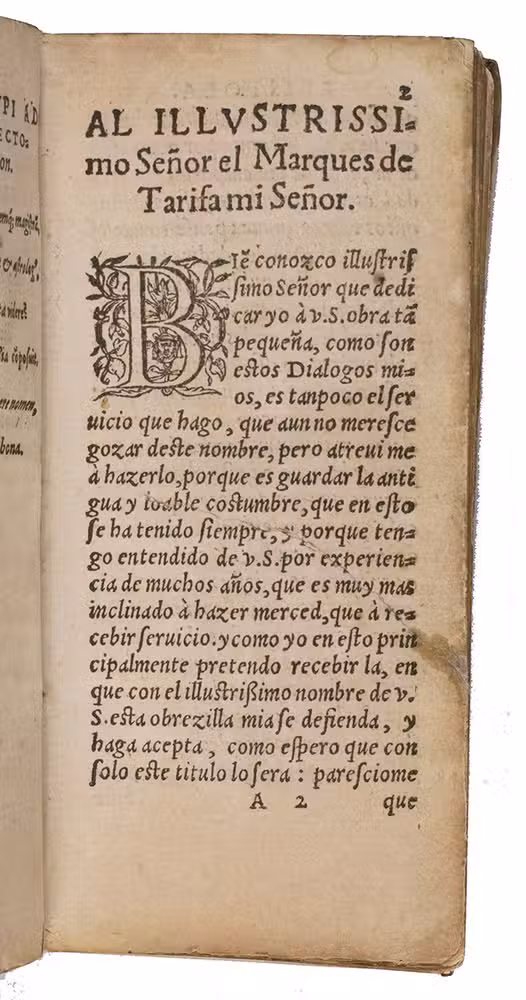 VPI AD
ECTO=
on.
bona.
2
AL ILLVSTRISSI=
mo Señor el Marques de
Tarifa mi Señor.
BIẽ conozco illustris
simo Señor que dedi
car yo à v.S. obra tã
pequeña, como son
estos Dialogos mi=
os, es tanpoco el ser
uicio que hago, que aun no meresce
gozar deste nombre, pero atreui me
à hazerlo, porque es guardar la anti
gua y loable costumbre, que en esto
se ha tenido siempre, y porque ten=
go entendido de v.S. por experien=
cia de muchos años, que es muy mas
inclinado à hazer merced, que à re=
cebir seruicio. y como yo en esto prin
cipalmente pretendo recebir la, en
que con el illustrißimo nombre de v.
S. esta obrezilla mia se defienda, y
haga acepta, como espero que con
solo este titulo lo sera : paresciome
A 2 que